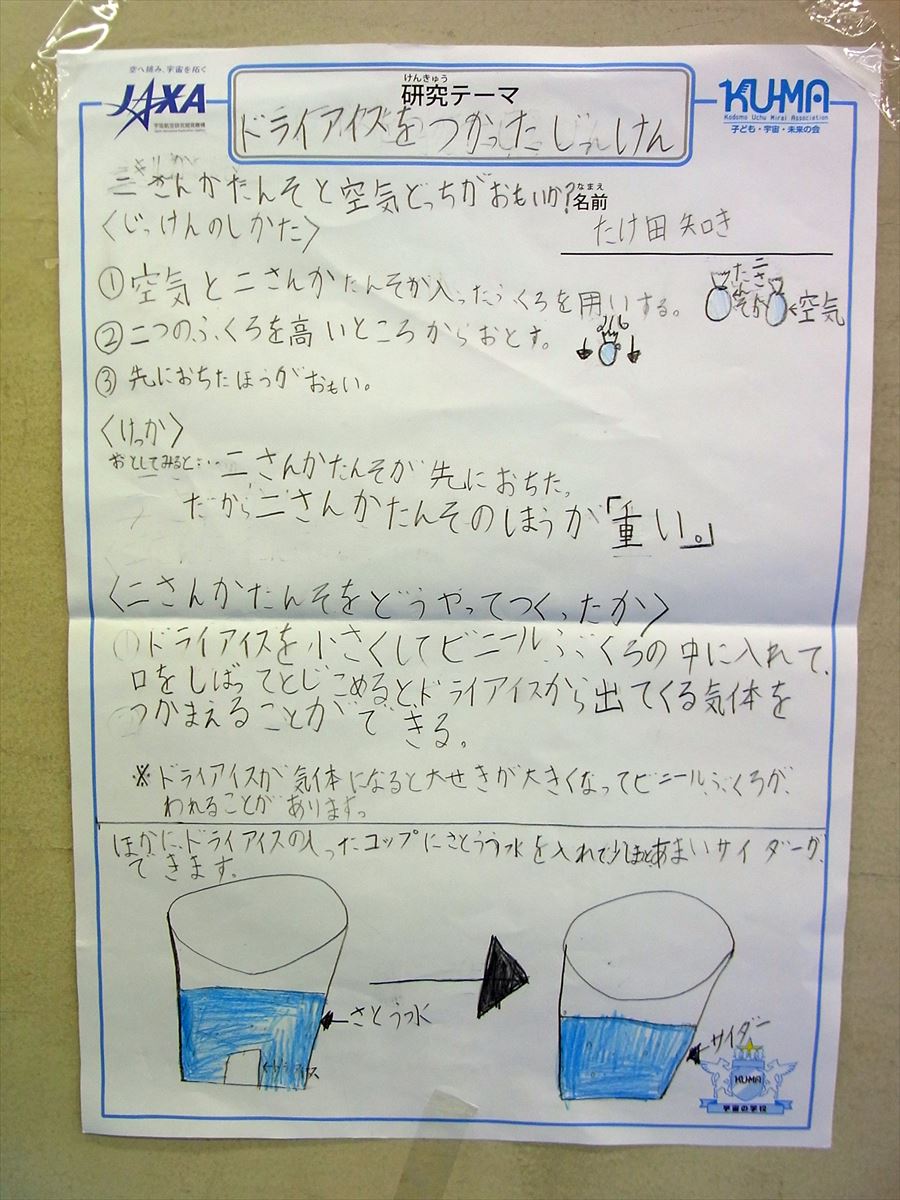 空へ挑み、宇宙を拓く
JAXA
宇宙航空研究開発機構
けんきゅう
研究テーマ
ドライアイスをつかったじっけん
KU-MA
Kodomo Uchu Mirai Association
子ども・宇宙・未来の会
二さんかたんそと空気どっちがおもいか?
なまえ
名前
たけ田知き
〈じっけんのしかた〉
①空気と二さんかたんそが入ったふくろを用いする。
二さんかたんそ
空気
②二つのふくろを高いところからおとす。
③先におちたほうがおもい。
〈けっか〉
おとしてみると…二さんかたんそが先におちた。
だから二さんかたんそのほうが「重い。」
〈二さんかたんそをどうやってつくったか〉
①ドライアイスを小さくしてビニールぶくろの中に入れて、
口をしばってとじこめるとドライアイスから出てくる気体を
つかまえることができる。
※ドライアイスが気体になると大せきが大きくなってビニールぶくろが、
われることがあります。
ほかに、ドライアイスの入ったコップにさとう水を入れてほとあまいサイダーが、
できます。
さとう水
サイダー
KUMA
宇宙の学校